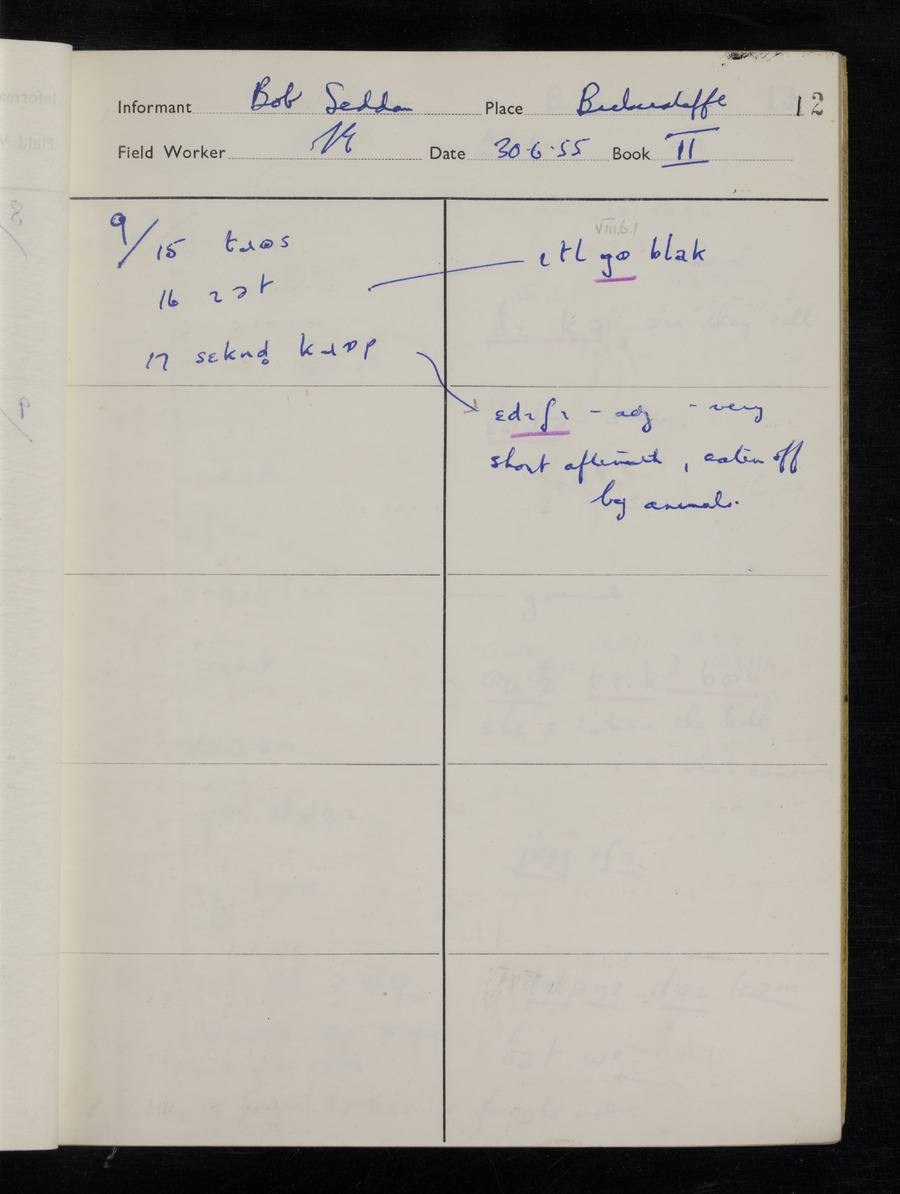 Informant Bob Seddon Place Bickerstaffe 12
Field Worker Date 30·6·55 Book II
9/15 tɹɷs
VIII.6.1
ɩtl gɷ blak
16 ɹɔt
17 sɛkn̩d kɹɒp
ɛdɩʃɩ - adj - very
short aftermath, eaten off
by animals.